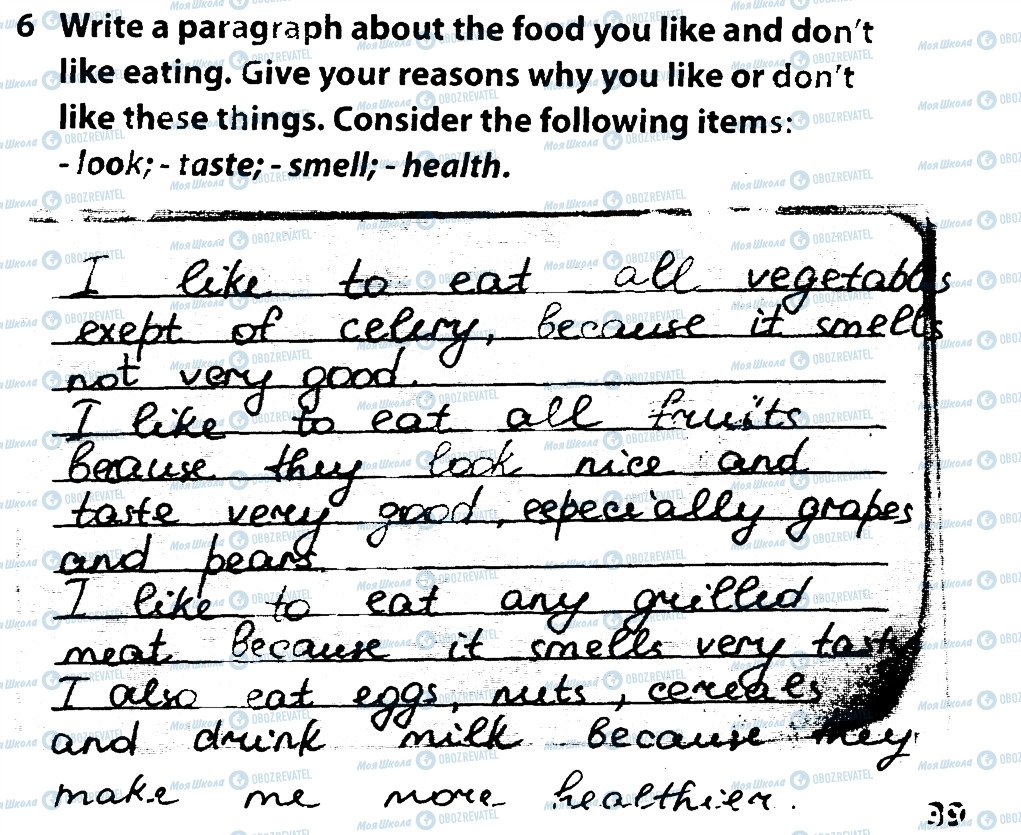 6 Write a paragraph about the food you like and don't
like eating. Give your reasons why you like or don't
like these things. Consider the following items:
- look; - taste; - smell; - health.
I like to eat all vegetables
exept of celery, because it smells
not very good.
I like to eat all fruits
because they look nice and
taste very good, especially grapes
and pears.
I like to eat any grilled
meat because it smells very tasty
I also eat eggs, nuts, cereals
and drink milk because they
make me more healthier.
99
МояШкола OBOZREVATEL